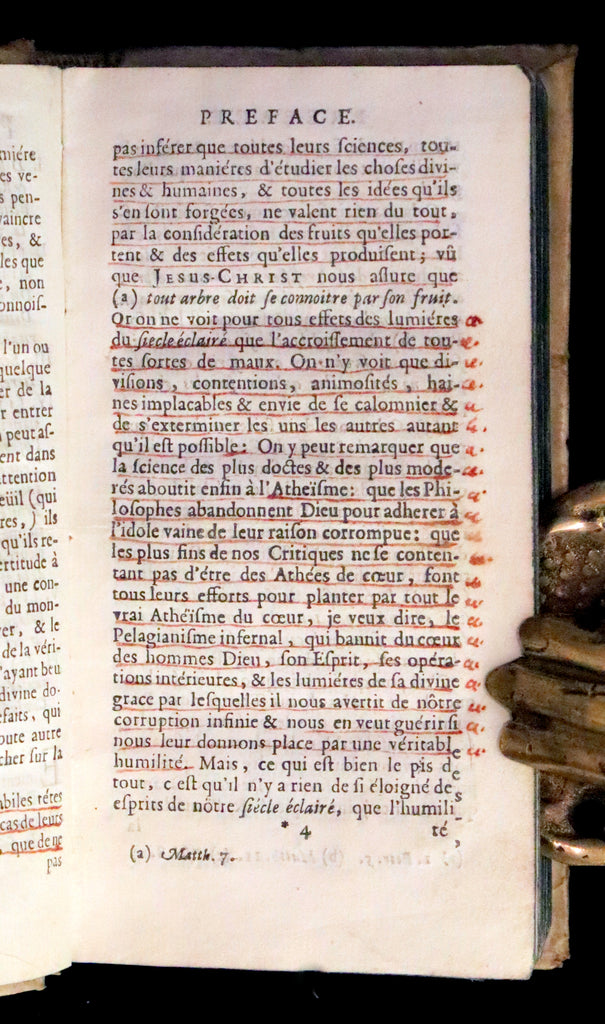 miére
es ve-
s pen-
vaincre
es, &
les que
, non
onnoiſ-
l'un ou
quelque
er de la
r entrer
peut aſ-
ent dans
attention
eüil (qui
res,) ils
qu'ils re-
ertitude à
une con-
du mon-
er, & le
de la véri-
'ayant beu
divine do-
efaits, qui
oute autre
cher ſur la
abiles têtes
cas de leurs
, que de ne
pas
PREFACE.
pas inférer que toutes leurs ſciences, tou-
tes leurs maniéres d'étudier les choſes divi-
nes & humaines, & toutes les idées qu'ils
s'en ſont forgées, ne valent rien du tout,
par la conſidération des fruits qu'elles por-
tent & des effets qu'elles produiſent; vû
que JESUS-CHRIST nous aſſure que
(a) tout arbre doit ſe connoitre par ſon fruit.
Or on ne voit pour tous effets des lumiéres
du ſiecle éclairé que l'accroiſſement de tou-
tes ſortes de maux. On n'y voit que di-
viſions, contentions, animoſités, hai-
nes implacables & envie de ſe calomnier &
de s'exterminer les uns les autres autant
qu'il eſt poſſible: On y peut remarquer que
la ſcience des plus doctes & des plus mode-
rés aboutit enfin à l'Atheïſme: que les Phi-
loſophes abandonnent Dieu pour adherer à
l'idole vaine de leur raiſon corrompue: que
les plus fins de nos Critiques ne ſe conten-
tant pas d'étre des Athées de cœur, font
tous leurs efforts pour planter par tout le
vrai Athéïſme du cœur, je veux dire, le
Pelagianiſme infernal, qui bannit du cœur
des hommes Dieu, ſon Eſprit, ſes opéra-
tions intérieures, & les lumiéres de ſa divine
grace par leſquelles il nous avertit de nôtre
corruption infinie & nous en veut guérir ſi
nous leur donnons place par une véritable
humilité. Mais, ce qui eſt bien le pis de
tout, c'eſt qu'il n'y a rien de ſi éloigné des
eſprits de nôtre ſiécle éclairé, que l'humili-
* 4 té,
(a) Matth. 7.